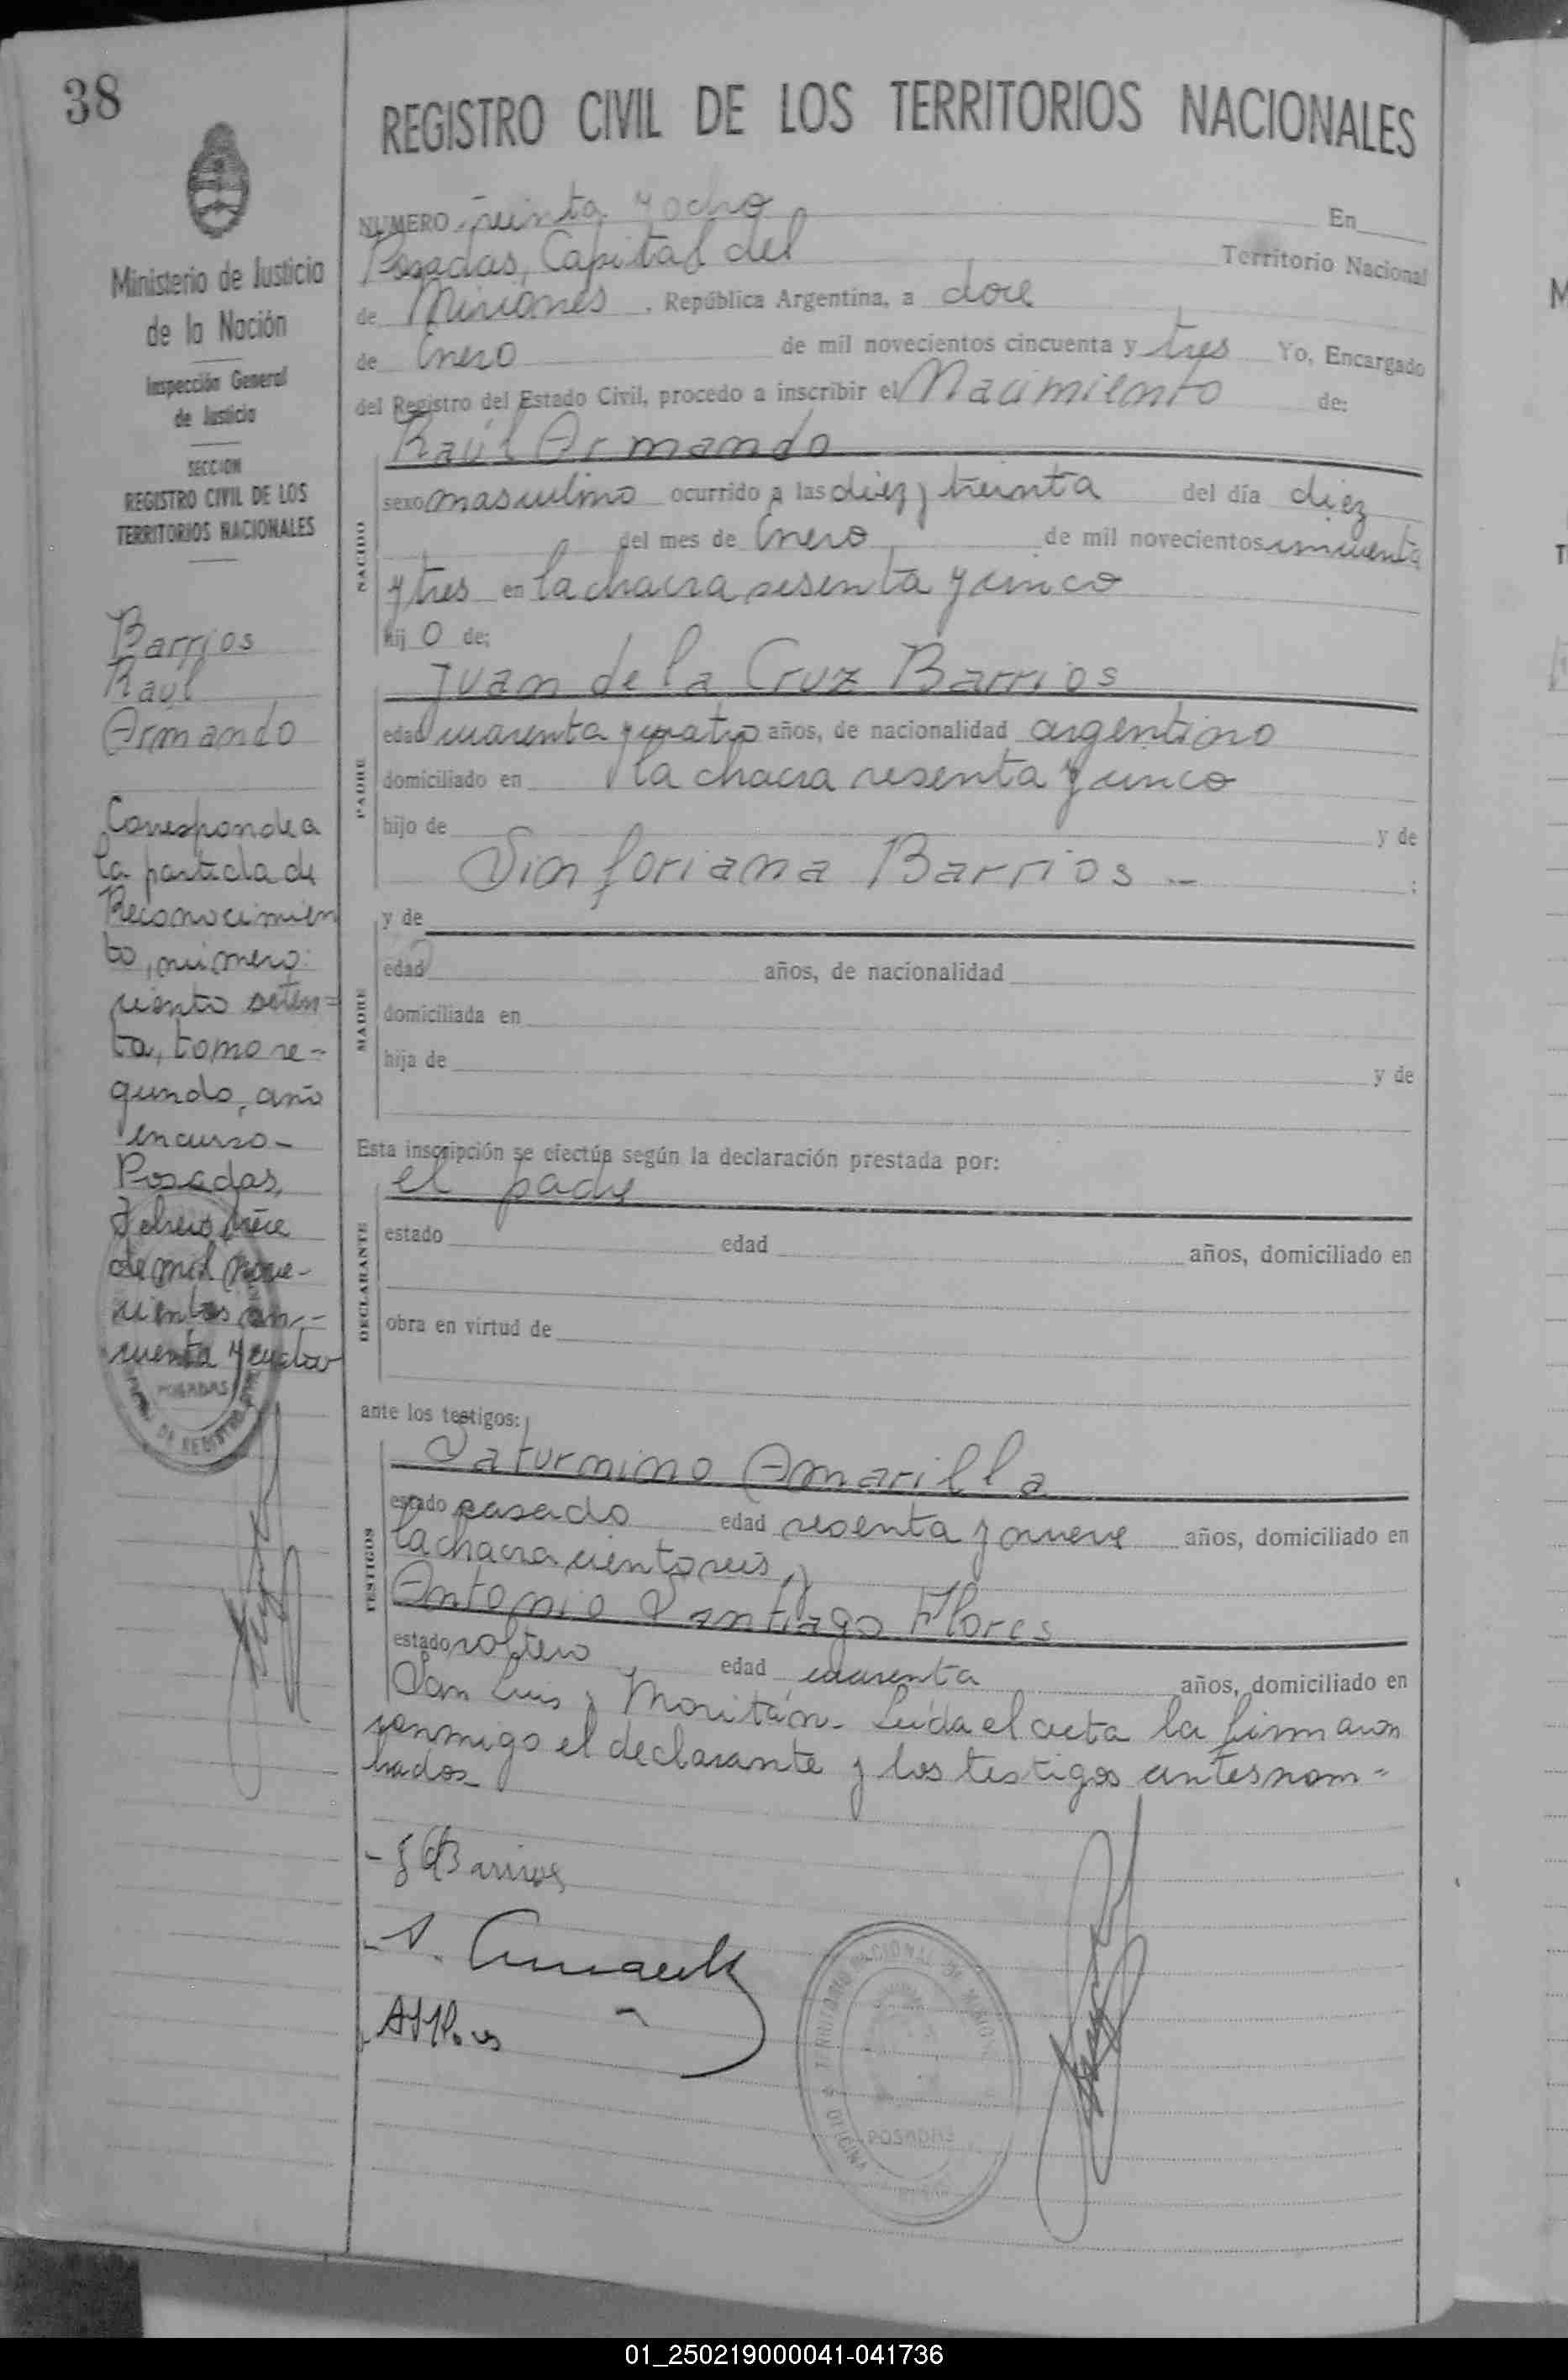 38
REGISTRO CIVIL DE LOS TERRITORIOS NACIONALES
Ministerio de Justicia
de la Nación
Inspección General
de Justicia
SECCION
REGISTRO CIVIL DE LOS
TERRITORIOS NACIONALES
Barrios
Raúl
Armando
Corresponde a
la partida de
Reconocimien
to, número:
ciento seten=
ta, tomo se-
gundo, año
en curso-
Posadas,
Febrero trece
de mil nove-
cientos cin-
cuenta y cuatro
POSADAS
NUMERO treinta y ocho En
Posadas, Capital del Territorio Nacional
de Misiones, República Argentina, a doce
de Enero de mil novecientos cincuenta y tres Yo, Encargado
del Registro del Estado Civil, procedo a inscribir el Nacimiento de:
Raúl Armando
NACIDO
sexo masculino ocurrido a las diez y treinta del día diez
del mes de Enero de mil novecientos cincuenta
y tres en la chacra sesenta y cinco
hij o de:
Juan de la Cruz Barrios
PADRE
edad cuarenta y cuatro años, de nacionalidad argentino
domiciliado en la chacra sesenta y cinco
hijo de y de
Sinforiana Barrios - ;
y de
MADRE
edad años, de nacionalidad
domiciliada en
hija de y de
Esta inscripción se efectúa según la declaración prestada por:
el padre
DECLARANTE
estado edad años, domiciliado en
obra en virtud de
ante los testigos:
Saturnino Amarilla
TESTIGOS
estado casado edad sesenta y nueve años, domiciliado en
la chacra ciento seis, y
Antonio Santiago Flores
estado soltero edad cuarenta años, domiciliado en
San Luis y Moritán. Leída el acta la firmaron
conmigo el declarante y los testigos antes nom=
brados-
- J C Barrios
- S. Amarilla
- ASFlores
TERRITORIO NACIONAL DE MISIONES
OFICINA
POSADAS
01_250219000041-041736